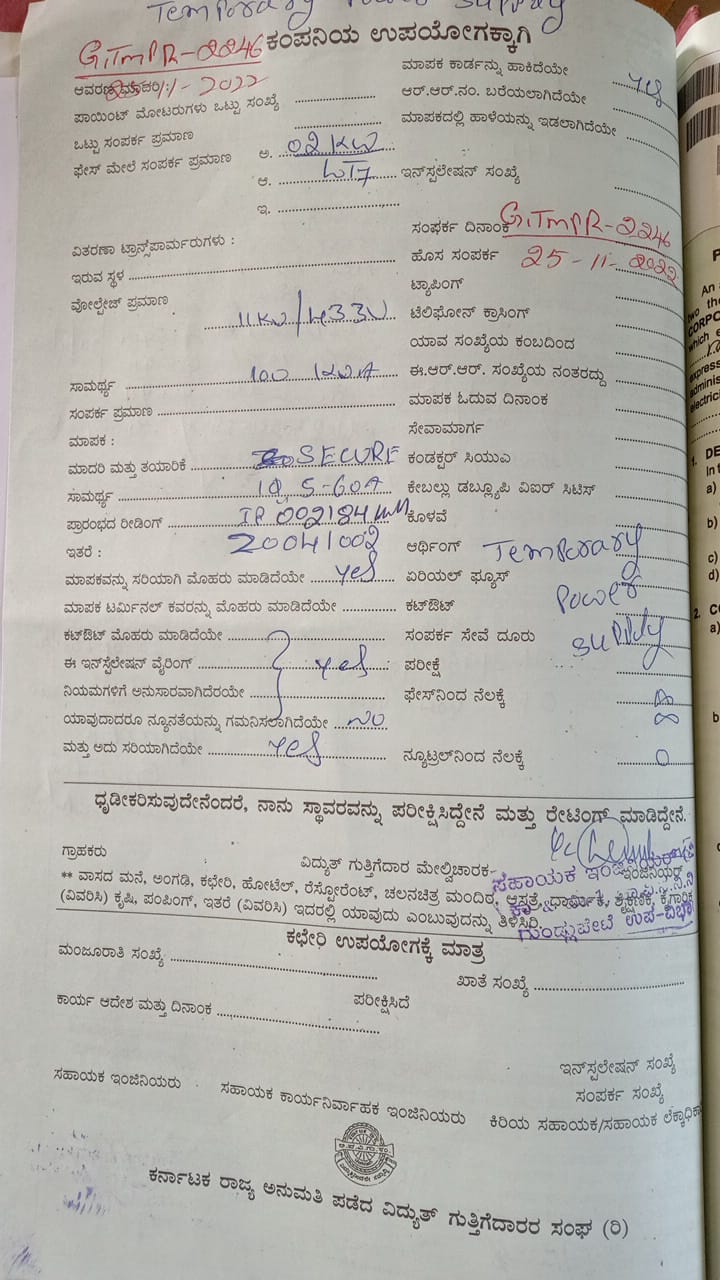 Temporary Power Supply
GTMPR-2246 ಕಂಪನಿಯ ಉಪಯೋಗಕ್ಕಾಗಿ
ಆವರಣ ಮಾದರಿ : 25-11-2022 ಮಾಪಕ ಕಾರ್ಡನ್ನು ಹಾಕಿದೆಯೇ yes
ಪಾಯಿಂಟ್ ಮೋಟರುಗಳು ಒಟ್ಟು ಸಂಖ್ಯೆ ಆರ್.ಆರ್.ನಂ. ಬರೆಯಲಾಗಿದೆಯೇ
ಒಟ್ಟು ಸಂಪರ್ಕ ಪ್ರಮಾಣ ಮಾಪಕದಲ್ಲಿ ಹಾಳೆಯನ್ನು ಇಡಲಾಗಿದೆಯೇ
ಫೇಸ್ ಮೇಲೆ ಸಂಪರ್ಕ ಪ್ರಮಾಣ ಅ. 02 KW
ಆ. ಇನ್‌ಸ್ಪಲೇಷನ್ ಸಂಖ್ಯೆ
ಇ.
ಸಂಪರ್ಕ ದಿನಾಂಕ GTMPR-2246
ವಿತರಣಾ ಟ್ರಾನ್ಸ್‌ಪಾರ್ಮರುಗಳು : ಹೊಸ ಸಂಪರ್ಕ 25-11-2022
ಇರುವ ಸ್ಥಳ ಟ್ಯಾಪಿಂಗ್
ವೋಲ್ಟೇಜ್ ಪ್ರಮಾಣ 11KV/433V ಟೆಲಿಫೋನ್ ಕ್ರಾಸಿಂಗ್
ಯಾವ ಸಂಖ್ಯೆಯ ಕಂಬದಿಂದ
ಸಾಮರ್ಥ್ಯ 100 KVA ಈ.ಆರ್.ಆರ್. ಸಂಖ್ಯೆಯ ನಂತರದ್ದು
ಸಂಪರ್ಕ ಪ್ರಮಾಣ ಮಾಪಕ ಓದುವ ದಿನಾಂಕ
ಮಾಪಕ : ಸೇವಾಮಾರ್ಗ
ಮಾದರಿ ಮತ್ತು ತಯಾರಿಕೆ SECURE ಕಂಡಕ್ಟರ್ ಸಿಯುಎ
ಸಾಮರ್ಥ್ಯ 1Ø, 5-60A ಕೇಬಲ್ಲು ಡಬ್ಲ್ಯೂಪಿ ವಿಐರ್ ಸಿಟಿಸ್
ಪ್ರಾರಂಭದ ರೀಡಿಂಗ್ IR 002184 ಕೊಳವೆ
ಇತರೆ : 20041002 ಆರ್ಥಿಂಗ್ Temporary
ಮಾಪಕವನ್ನು ಸರಿಯಾಗಿ ಮೊಹರು ಮಾಡಿದೆಯೇ yes ಏರಿಯಲ್ ಫ್ಯೂಸ್
ಮಾಪಕ ಟರ್ಮಿನಲ್ ಕವರನ್ನು ಮೊಹರು ಮಾಡಿದೆಯೇ ಕಟ್‌ಔಟ್ Power
ಕಟ್‌ಔಟ್ ಮೊಹರು ಮಾಡಿದೆಯೇ ಸಂಪರ್ಕ ಸೇವೆ ದೂರು Supply
ಈ ಇನ್‌ಸ್ಟೆಲೇಷನ್ ವೈರಿಂಗ್ yes ಪರೀಕ್ಷೆ
ನಿಯಮಗಳಿಗೆ ಅನುಸಾರವಾಗಿದೆರಯೇ ಫೇಸ್‌ನಿಂದ ನೆಲಕ್ಕೆ ∞
ಯಾವುದಾದರೂ ನ್ಯೂನತೆಯನ್ನು ಗಮನಿಸಲಾಗಿದೆಯೇ No ∞
ಮತ್ತು ಅದು ಸರಿಯಾಗಿದೆಯೇ yes ನ್ಯೂಟ್ರಲ್‌ನಿಂದ ನೆಲಕ್ಕೆ 0
ಧೃಡೀಕರಿಸುವುದೇನೆಂದರೆ, ನಾನು ಸ್ಥಾವರವನ್ನು ಪರೀಕ್ಷಿಸಿದ್ದೇನೆ ಮತ್ತು ರೇಟಿಂಗ್ ಮಾಡಿದ್ದೇನೆ.
ಗ್ರಾಹಕರು ವಿದ್ಯುತ್ ಗುತ್ತಿಗೆದಾರ ಮೇಲ್ವಿಚಾರಕ ಸಹಾಯಕ ಇಂಜಿನಿಯರ್
** ವಾಸದ ಮನೆ, ಅಂಗಡಿ, ಕಛೇರಿ, ಹೋಟೆಲ್, ರೆಸ್ಟೋರೆಂಟ್, ಚಲನಚಿತ್ರ ಮಂದಿರ, ಆಸ್ಪತ್ರೆ, ಧಾರ್ಮಿಕ, ಶೈಕ್ಷಣಿಕ, ಕೈಗಾರಿಕೆ
(ವಿವರಿಸಿ) ಕೃಷಿ, ಪಂಪಿಂಗ್, ಇತರೆ (ವಿವರಿಸಿ) ಇದರಲ್ಲಿ ಯಾವುದು ಎಂಬುವುದನ್ನು ತಿಳಿಸಿರಿ.
ಗುಂಡ್ಲುಪೇಟೆ ಉಪ-ವಿಭಾಗ
ಕಛೇರಿ ಉಪಯೋಗಕ್ಕೆ ಮಾತ್ರ
ಮಂಜೂರಾತಿ ಸಂಖ್ಯೆ ಖಾತೆ ಸಂಖ್ಯೆ
ಕಾರ್ಯ ಆದೇಶ ಮತ್ತು ದಿನಾಂಕ ಪರೀಕ್ಷಿಸಿದೆ
ಇನ್‌ಸ್ಪಲೇಷನ್ ಸಂಖ್ಯೆ
ಸಂಪರ್ಕ ಸಂಖ್ಯೆ
ಸಹಾಯಕ ಇಂಜಿನಿಯರು ಸಹಾಯಕ ಕಾರ್ಯನಿರ್ವಾಹಕ ಇಂಜಿನಿಯರು ಕಿರಿಯ ಸಹಾಯಕ/ಸಹಾಯಕ ಲೆಕ್ಕಾಧಿಕಾ
ಕರ್ನಾಟಕ ರಾಜ್ಯ ಅನುಮತಿ ಪಡೆದ ವಿದ್ಯುತ್ ಗುತ್ತಿಗೆದಾರರ ಸಂಘ (ರಿ)